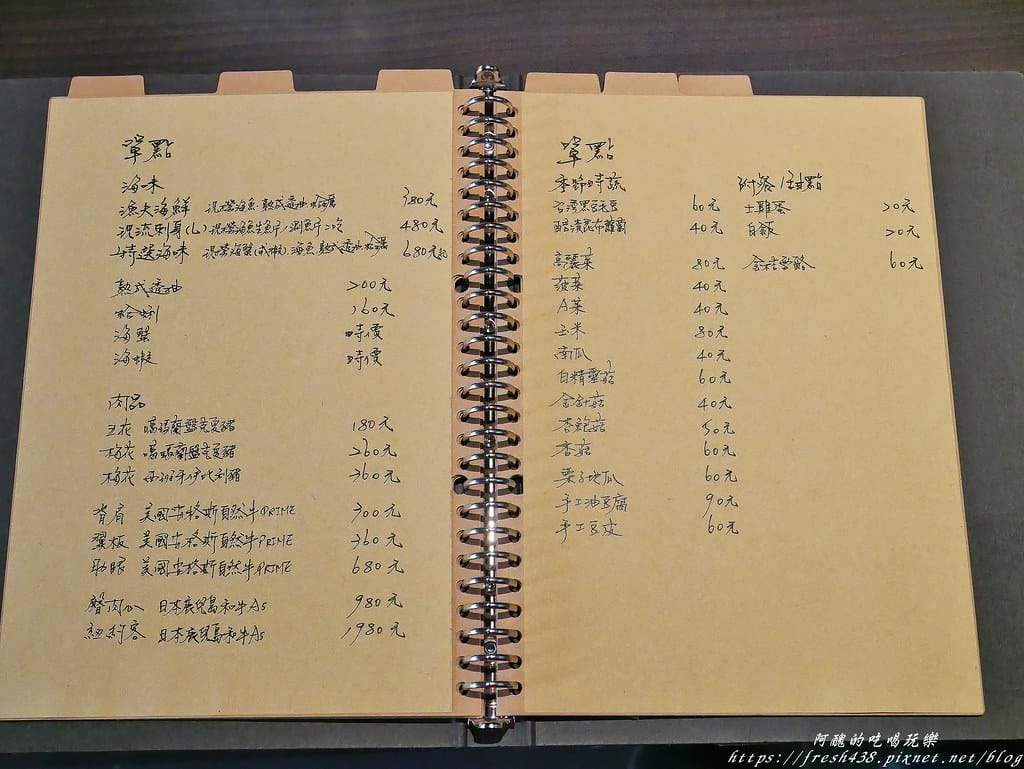 單點
海味
漁夫海鮮 現撈海魚.熟式透抽.蛤蠣 380元
洄流刺身(L) 現撈海魚生魚片/涮魚片二吃 480元
特選海味 現撈海蟹(或蝦).海魚.熟式透抽.蛤蠣 680元起
熟式透抽 200元
蛤蜊 160元
海蟹 時價
海蝦 時價
肉品
五花 嘉頓蘭盤克夏豬 180元
梅花 盤克夏豬 260元
梅花 西班牙伊比利豬 360元
背肩 美國安格斯自然牛PRIME 300元
翼板 美國安格斯自然牛PRIME 360元
肋眼 美國安格斯自然牛PRIME 680元
臀肉心 日本鹿兒島和牛A5 980元
紐約客 日本鹿兒島和牛A5 1980元
單點
季節時蔬
台灣黑豆毛豆 60元
醋漬昆布蘿蔔 40元
高麗菜 80元
菠菜 40元
A菜 40元
玉米 80元
南瓜 40元
白精靈菇 60元
金針菇 40元
杏鮑菇 50元
香菇 60元
栗子地瓜 60元
手工油豆腐 90元
手工豆皮 60元
附餐/甜點
土雞蛋 20元
白飯 20元
奶酪 60元
阿醜的吃喝玩樂
https://fresh438.pixnet.net/blog